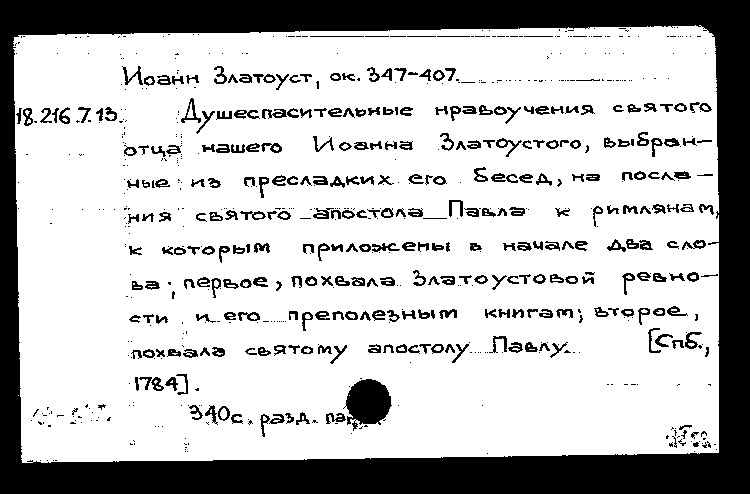 Иоанн Златоуст, ок. 347-407.
18.216.7.13. Душеспасительные нравоучения святого
отца нашего Иоанна Златоустого, выбран-
ные из пресладких его бесед, на посла-
ния святого апостола Павла к римлянам,
к которым приложены в начале два сло-
ва: первое, похвала Златоустовой ревно-
сти и его преполезным книгам; второе,
похвала святому апостолу Павлу. [Спб.,
1784].
340с. разд. паг.